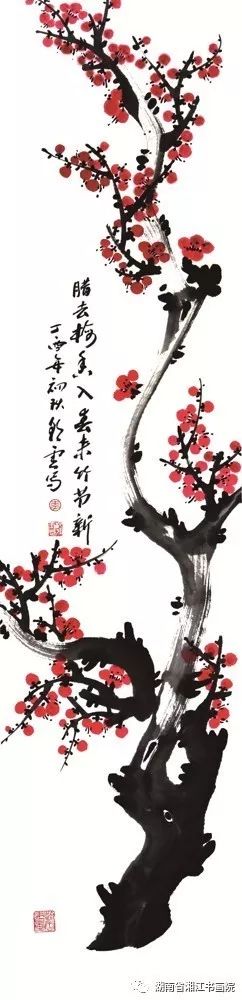 腊去梅香入 春来竹节新
丁酉年初秋彩云写
湖南省湘江书画院